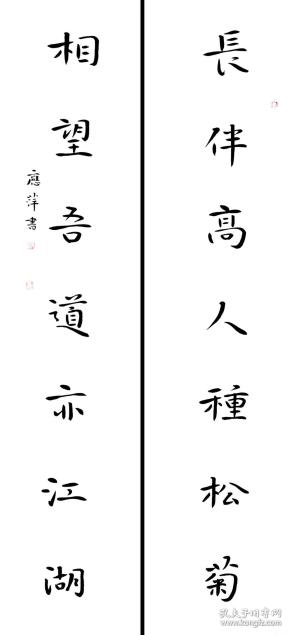 長伴高人種松菊
相望吾道亦江湖
應萍書
孔夫子旧书网
www.kongfz.com